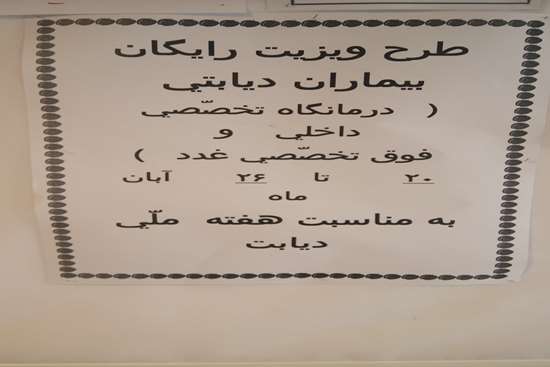 طرح ویزیت رایگان
بیماران دیابتي
( درمانگاه تخصّصي
داخلي و
فوق تخصّصي غدد )
۲۰ تا ۲۶ آبان
ماه
به مناسبت هفته ملّي
دیابت